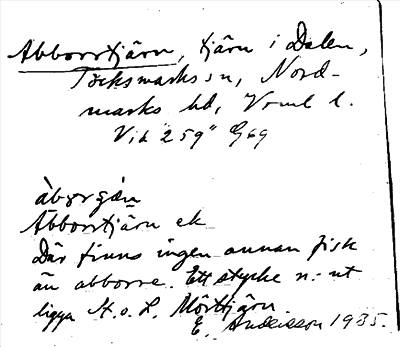 Abborrtjärn, tjärn i Dalen,
Töcksmarks sn, Nord-
marks hd, Vrml l.
Vid 259" G69
àbȯrgǟn
Abborrtjärn ek
Där finns ingen annan fisk
än abborre. Ett stycke n. ut
ligga St. o. L. Mörttjärn
E. Andersson 1935.